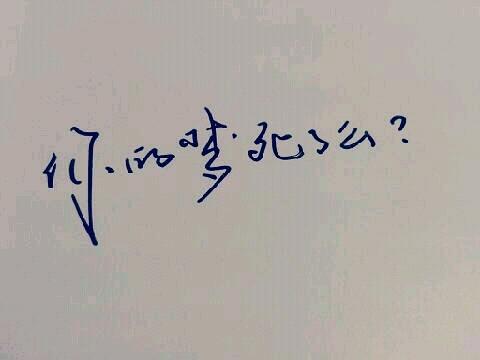 你的梦死了么?